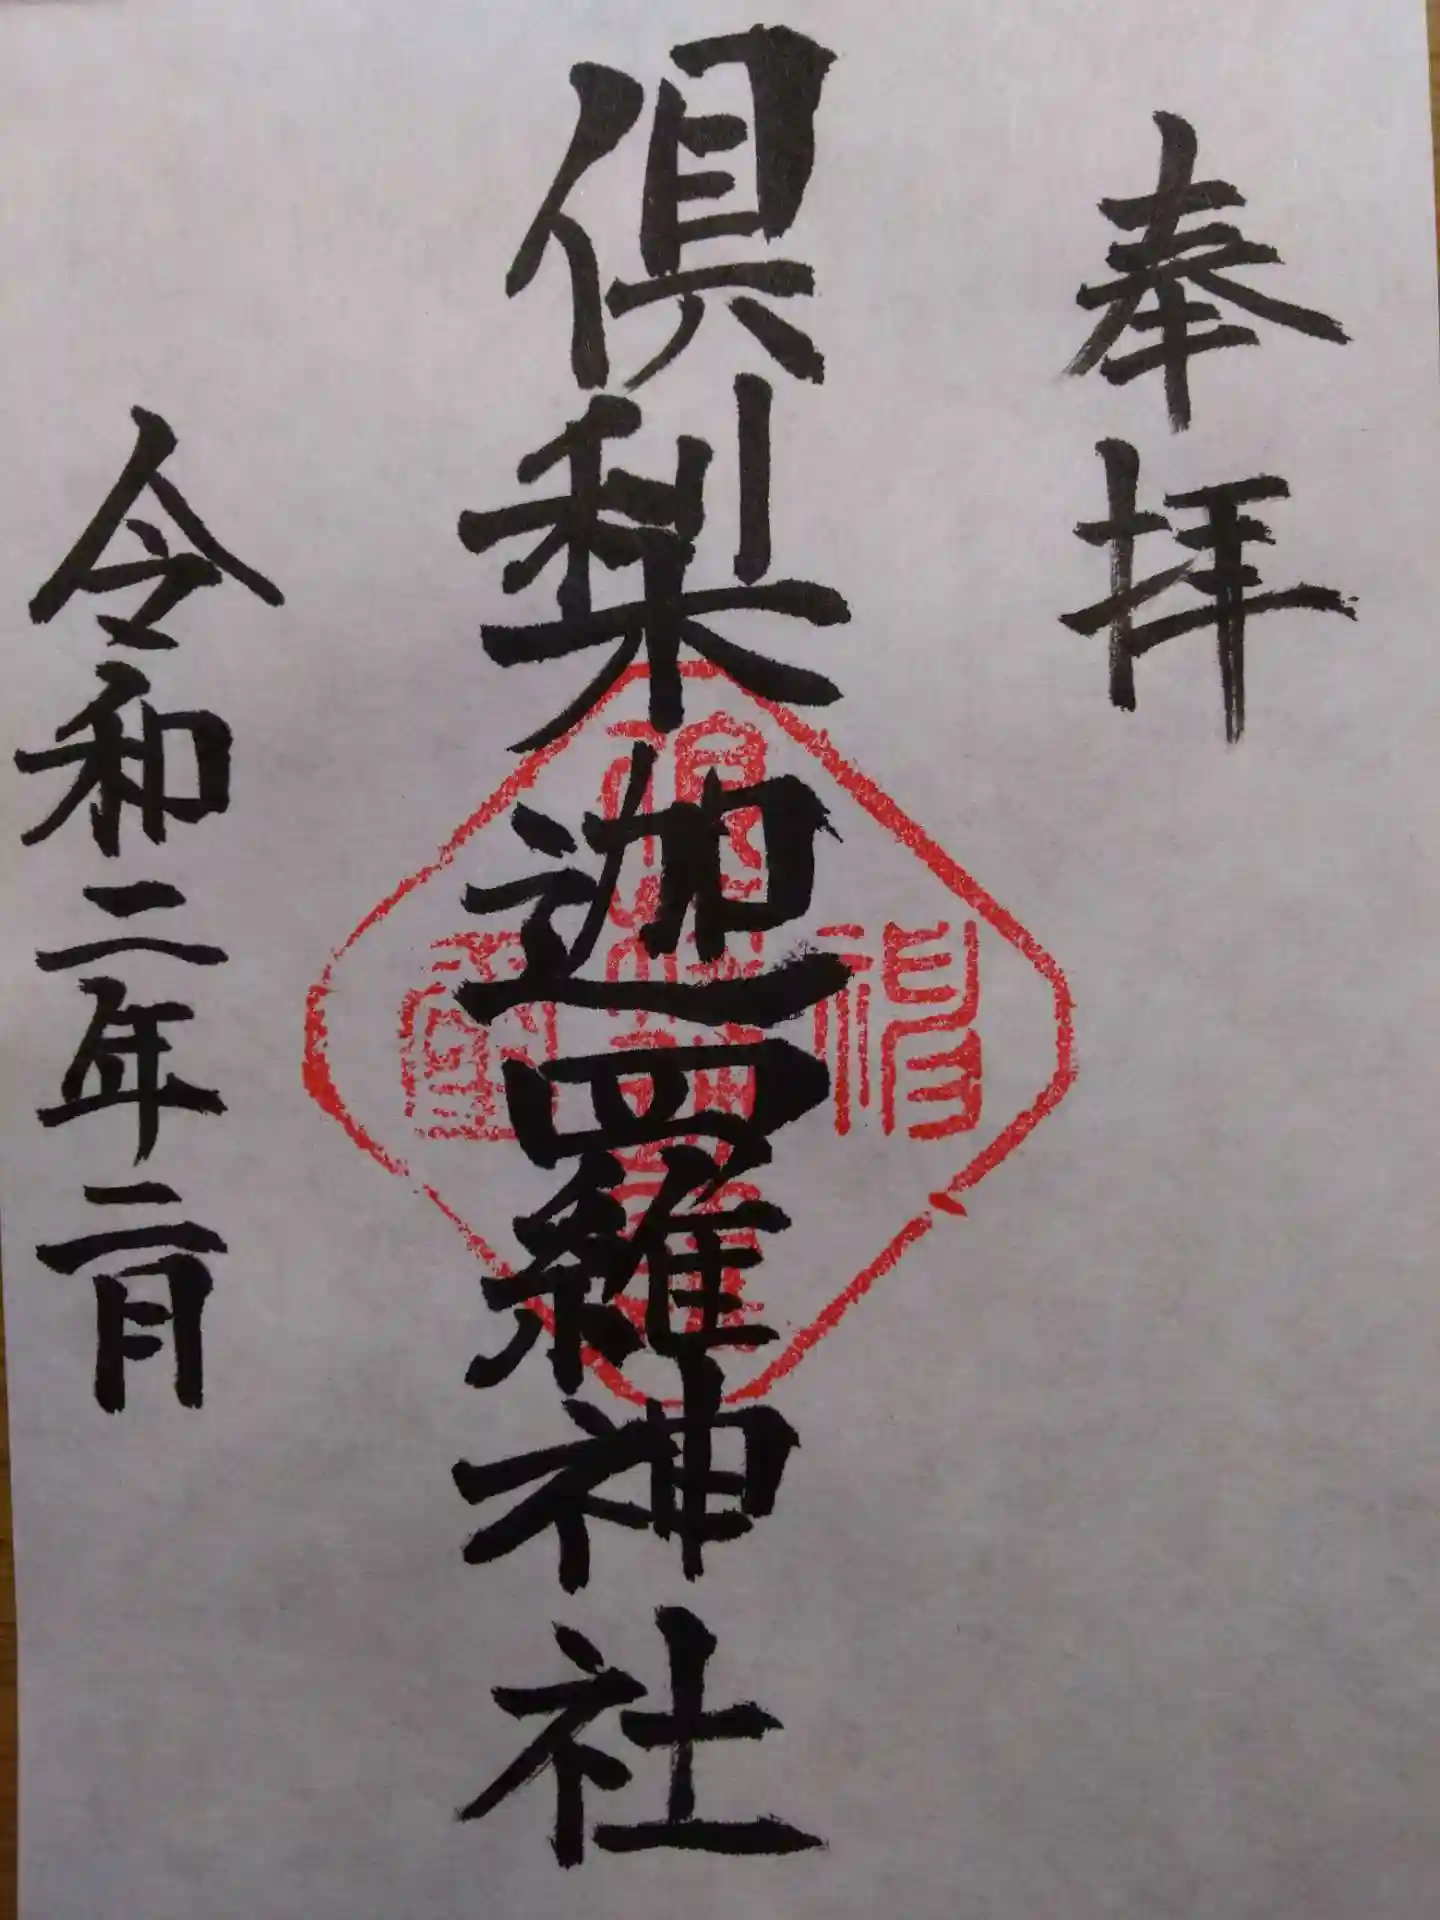 奉拝
倶梨迦羅神社
令和二年二月